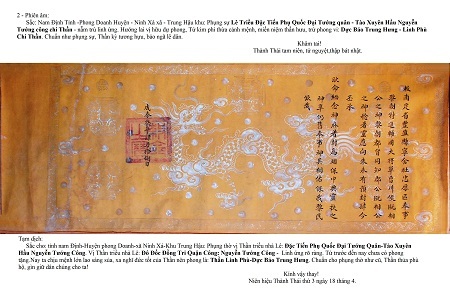 2 - Phiên âm:
Sắc: Nam Định Tỉnh -Phong Doanh Huyện - Ninh Xá xã - Trung Hậu khu; Phụng sự Lê Triều Đặc Tiến Phụ Quốc Đại Tướng quân - Tào Xuyên Hầu Nguyễn
Tướng công chi Thần - nẫm trù linh ứng. Hướng lai vị hữu dự phong, Tứ kim phi thừa cảnh mệnh, miễn niệm thần hưu, trù phong vi: Dực Bảo Trung Hưng - Linh Phù
Chi Thần. Chuẩn như phụng sự, Thần kỳ tương hựu, bảo ngã lê dân.
Khâm tai!
Thành Thái tam niên, tứ nguyệt,thập bát nhật.
敕南定省豐盈縣寧舍社忠厚區奉事
黎朝特進輔國大將軍
公之神黎朝都督同知
之神稔著靈應向來未有預封肆今
丕承
耿命緬念神庥著封為翊保中興靈扶之
神準仍舊奉事神其相佑保我黎民
欽哉
成泰叁年肆月拾捌日
Tạm dịch:
Sắc cho: tỉnh nam Định-Huyện phong Doanh-xã Ninh Xá-Khu Trung Hậu: Phụng thờ vị Thần triều nhà Lê: Đặc Tiến Phụ Quốc Đại Tướng Quân-Tào Xuyên
Hầu Nguyễn Tướng Công. Vị Thần triều nhà Lê: Đô Đốc Đồng Tri Quận Công: Nguyễn Tướng Công - Linh ứng rõ ràng. Từ trước đến nay chưa có phong
tặng. Nay ta chịu mệnh lớn lao sáng sủa, xa nghĩ đức tốt của Thần nên phong là: Thần Linh Phù-Dực Bảo Trung Hưng. Chuẩn cho phụng thờ như cũ, Thần thừa phù
hộ, gìn giữ dân chúng cho ta!
Kính vậy thay!
Niên hiệu Thành Thái thứ 3 ngày 18 tháng 4.